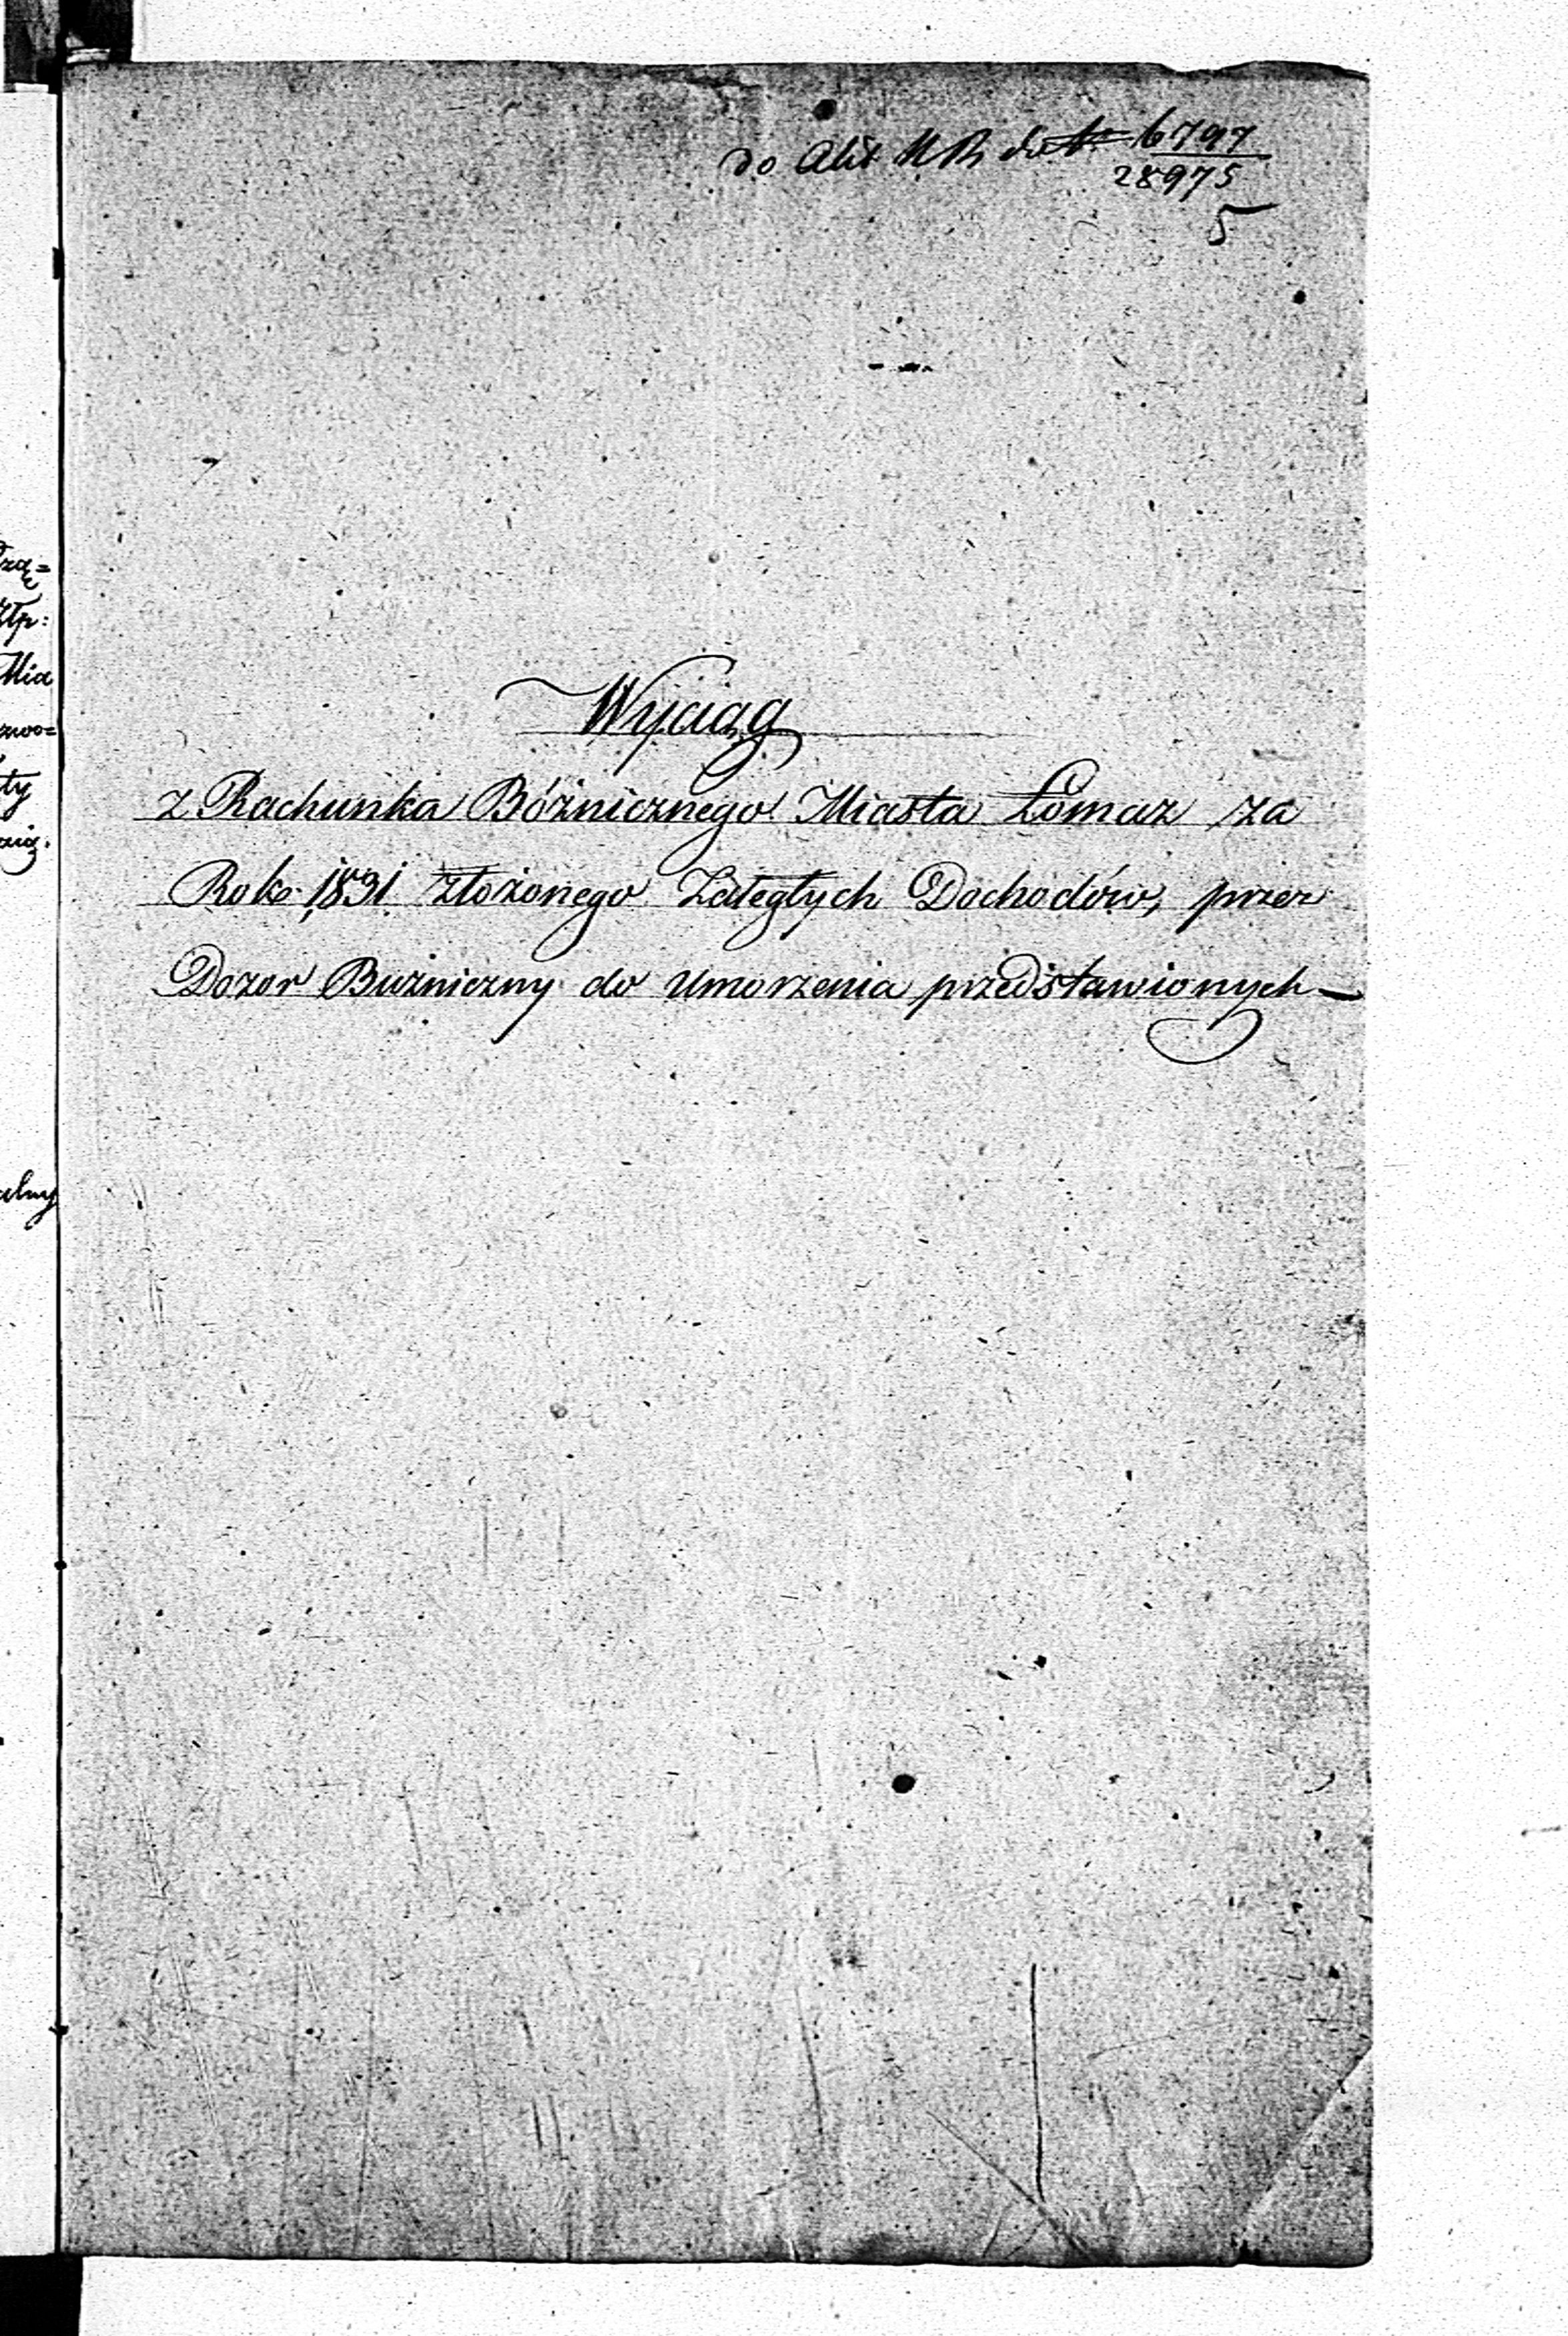 do 6797
28975
5
Wyciąg
z Rachunku Bóżnicznego Miasta Łomaz za
Rok 1831 złożonego Zaległych Dochodów, przez
Dozor Bużniczny do Umorzenia przedstawionych
Mia
ty